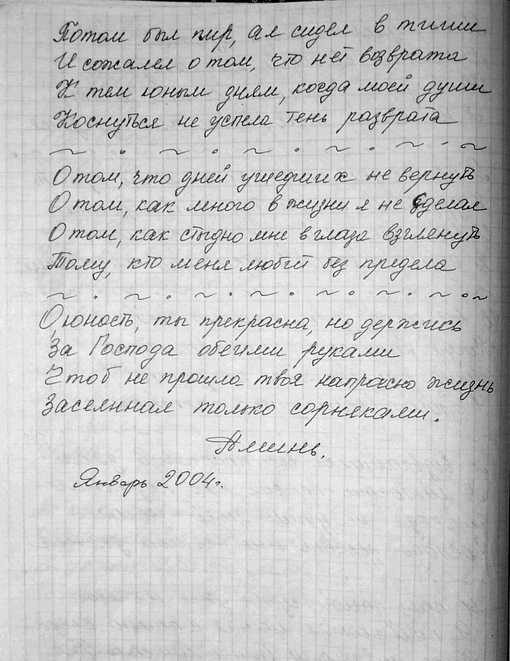 Потом был пир, а я сидел в тиши
И сожалел о том, что нет возврата
К тем юным дням, когда моей души
Коснуться не успела тень разврата
~ . ~ . ~ . ~ . ~ . ~
О том, что дней ушедших не вернуть
О том, как много в жизни я не сделал
О том, как стыдно мне в глаза взглянуть
Тому, кто меня любит без предела
~ . ~ . ~ . ~ . ~ . ~ . ~ . ~
О юность, ты прекрасна, но держись
За Господа обеими руками
Чтоб не прошла твоя напрасно жизнь
Засеянная только сорняками.
Аминь.
Январь 2004г.